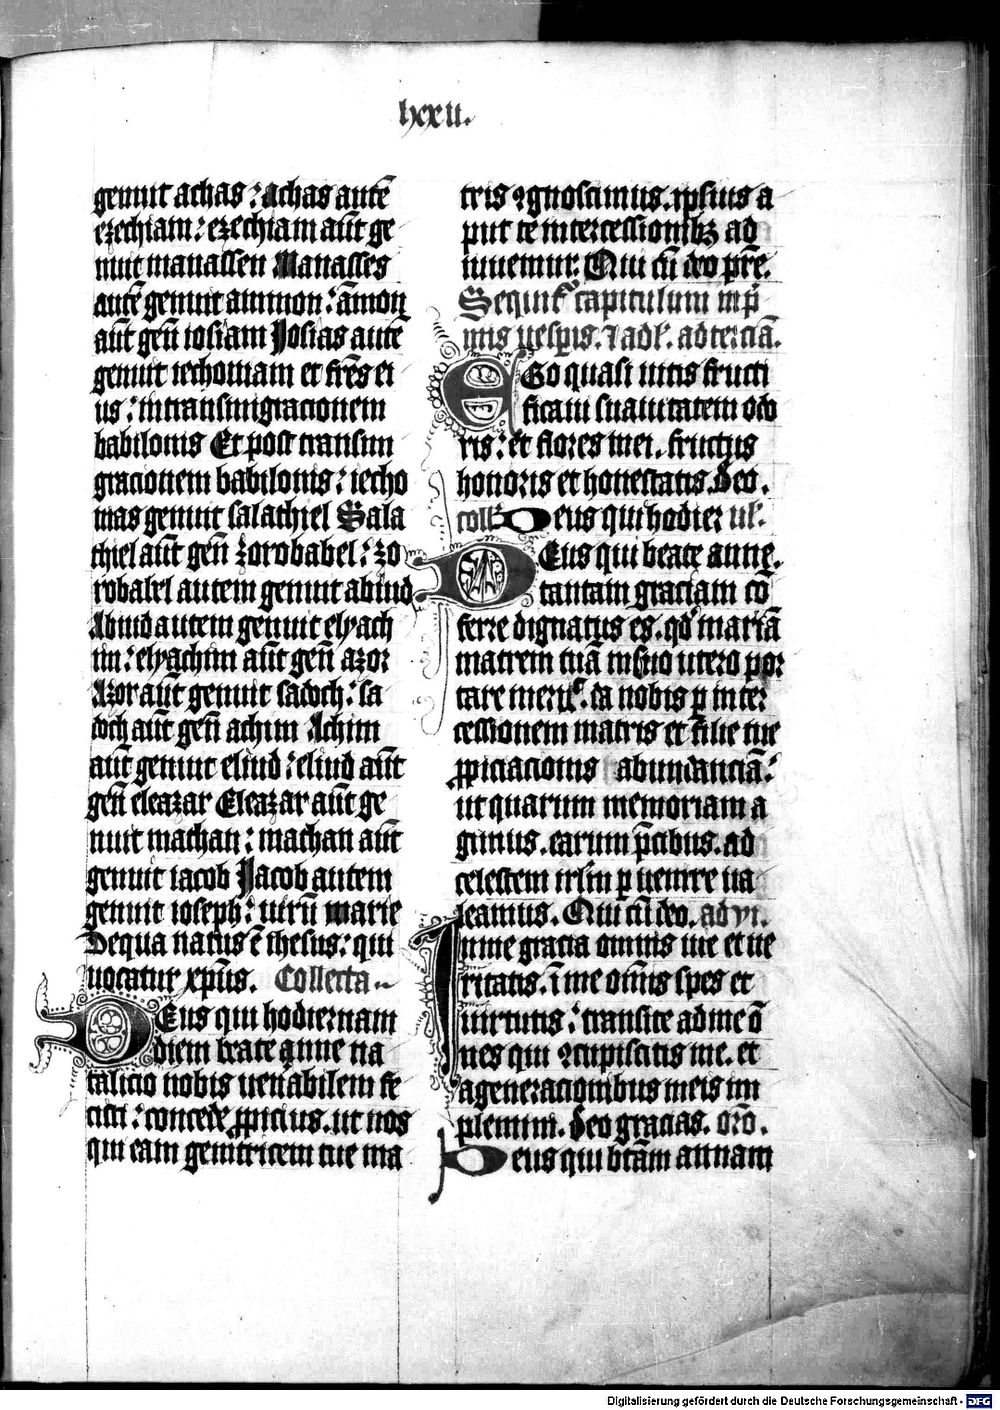 lxxii.
genuit achas : Achas autē
ezechiam : ezechiam aūt ge
nuit manassen Manasses
autē genuit ammon : āmon
aūt geñ iosiam Josias autē
genuit iechoniam et frēs ei
us : in transmigracionem
babilonis Et post transmi
gracionem babilonis : iecho
nias genuit salathiel Sala
thiel aūt geñ zorobabel : zo
robabel autem genuit abiud
Abiud autem genuit elyach
im : elyachim aūt geñ azor
Azor aūt genuit sadoch : sa
doch aūt geñ achim Achim
aūt genuit eliud : eliud aūt
geñ eleazar Eleazar aūt ge
nuit mathan : mathan aūt
genuit iacob Jacob autem
genuit ioseph : uirū marie
De qua natus ē ihesus : qui
uocatur xp̄us. Collecta
Deus qui hodiernam
diem beate anne na
talicio nobis uen̄abilem fe
cisti : concede ꝓpicius. ut nos
qui eam genitricem tue ma
tris ꝯgnoscimus. ipsius a
put te intercessionibꝫ ad
iuuemur. Qui cū deo pr̄e.
Sequit᷑ capitulum in p̄
mis uesꝑis. ⁊ ad l'. ad terciā.
EGo quasi uitis fructi
ficaui suauitatem odo
ris : et flores mei. fructus
honoris et honestatis. Deo.
coll' Deus qui hodier ul'.
DEus qui beate anne.
tantam graciam cō
ferre dignatus es. qđ mariā
matrem tuā in suo utero por
tare meruit. da nobis ꝑ inter
cessionem matris et filie tue
ꝓpiciacionis abundanciā :
ut quarum memoriam a
gimus. earum p̄cibus. ad
celestem irlm̄ ꝑuenire ua
leamus. Qui cū deo. ad vi.
In me gracia omnis uie et ue
ritatis. ī me om̄is spes et
uirtutis : transite ad me ō
nes qui ꝯcupiscitis me. et
a generacionibus meis im
plemini. Deo gracias. or̄o.
Deus qui bt̄am annam
Digitalisierung gefördert durch die Deutsche Forschungsgemeinschaft - DFG